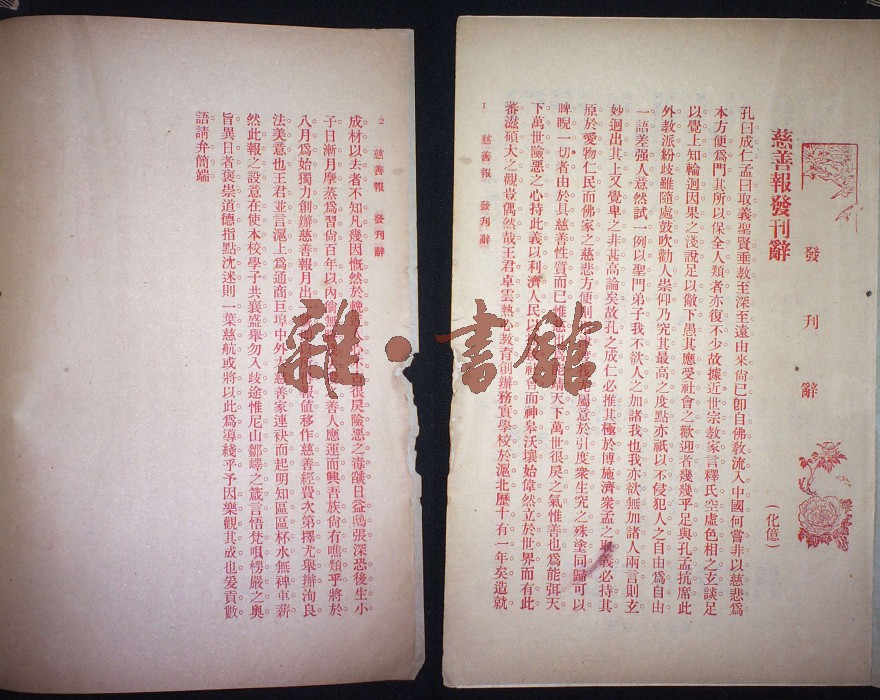 發刊辭
慈善報發刊辭
(化億)
孔曰成仁孟曰取義聖賢垂教至深至遠由來尙已卽自佛敎流入中國何嘗非以慈悲爲
本方便爲門其所以保全人類者亦復不少故據近世宗敎家言釋氏空虛色相之玄談足
以覺上知輪迴因果之淺說足以儆下愚其應受社會之歡迎者幾幾乎足與孔孟抗席此
外敎派紛歧雖隨處鼓吹勸人崇仰乃究其最高之度點亦祇以不侵犯人之自由爲自由
一語差强人意然試一例以聖門弟子我不欲人之加諸我也我亦欲無加諸人兩言則玄
妙迥出其上又覺卑之非甚高論矣故孔之成仁必推其極於博施濟衆孟之取義必持其
原於愛物仁民而佛家之慈悲方便則 屬意於引度衆生究之殊塗同歸可以
睥睨一切者由於具慈善性質而已惟 能 天下萬世很戾之氣惟善也爲能弭天
下萬世險惡之心持此義以利濟人民以 社會而神皋沃壤始偉然立於世界而有此
蕃滋碩大之觀豈偶然哉王君卓雲熱心敎育創辦務實學校於滬北歷十有一年矣造就
1 慈善報 發刊辭
2 慈善報 發刊辭
成材以去者不知凡幾因慨然於 人心 很戾險惡之毒燄日益鴟張深恐後生小
子日漸月摩蒸爲習尙百年以內倘無 善人應運而興吾族尙有噍類乎將於
八月爲始獨力創辦慈善報月出 報値移作慈善經費次第擇尤舉辦洵良
法美意也王君並言滬上爲通商巨埠中外 慈善家連袂而起明知區區杯水無裨車薪
然此報之設意在使本校學子共襄盛舉勿入歧途惟尼山鄒嶧之箴言悟梵唄楞嚴之奧
旨異日者褒崇道德指點沈迷則一葉慈航或將以此爲導綫乎予因樂觀其成也爰貢數
語請弁簡端
雜·書館